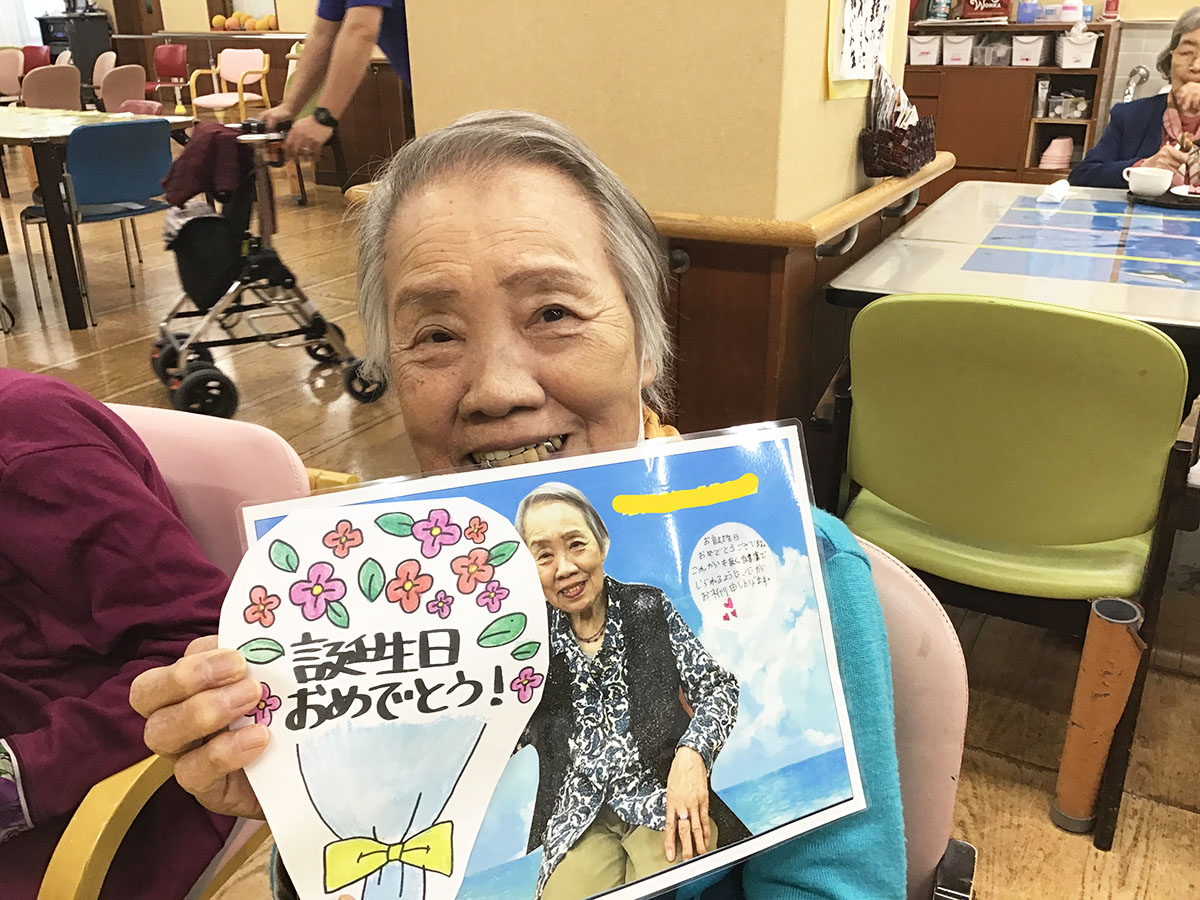 誕生日
おめでとう!
お誕生日
おめでとうございます。
これからも長く健康で
いられるように、心から
お祈り申し上げます。
WONKA